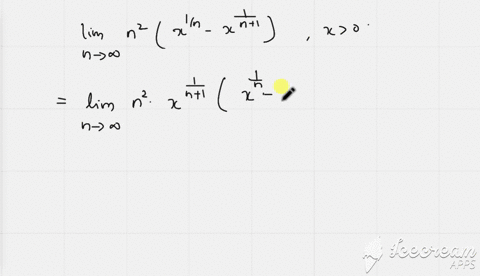 lim n→∞ n² ( x^{1/n} - x^{\frac{1}{n+1}} ) , x > 0 .
= lim n→∞ n² · x^{\frac{1}{n+1}} ( x^{\frac{1}{n}} -
Icecream
APPS